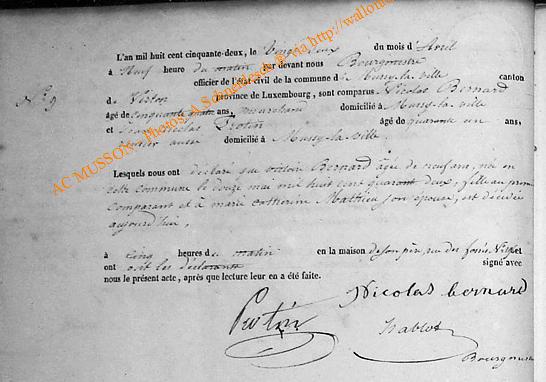 L'an mil huit cent cinquante-deux, le Vingt deux du mois d'Avril
à Neuf heure du matin par devant nous Bourgmestre
officier de l'état civil de la commune de Mussy-la-ville canton
N° 9
de Virton province de Luxembourg, sont comparus Nicolas Bernard
âgé de cinquante quatre ans, marchand domicilié à Mussy-la-ville
et Jean Nicolas âgé de quarante un ans,
aussi domicilié à Mussy-la-ville.
Lesquels nous ont déclaré que Bernard âgée de neuf ans, née en
cette commune le douze mai mil huit cent quarante deux, fille au premier
comparant et à marie catherine Mathieu son épouse, est décédée
aujourd'hui,
à cinq heures du matin en la maison de son père, rue des fossés N° et
ont les déclarants signé avec
nous le présent acte, après que lecture leur en a été faite.
Nicolas bernard
Bourgmestre
AC MUSSON - Photos: A. Schneidesch @ via http://wallonia